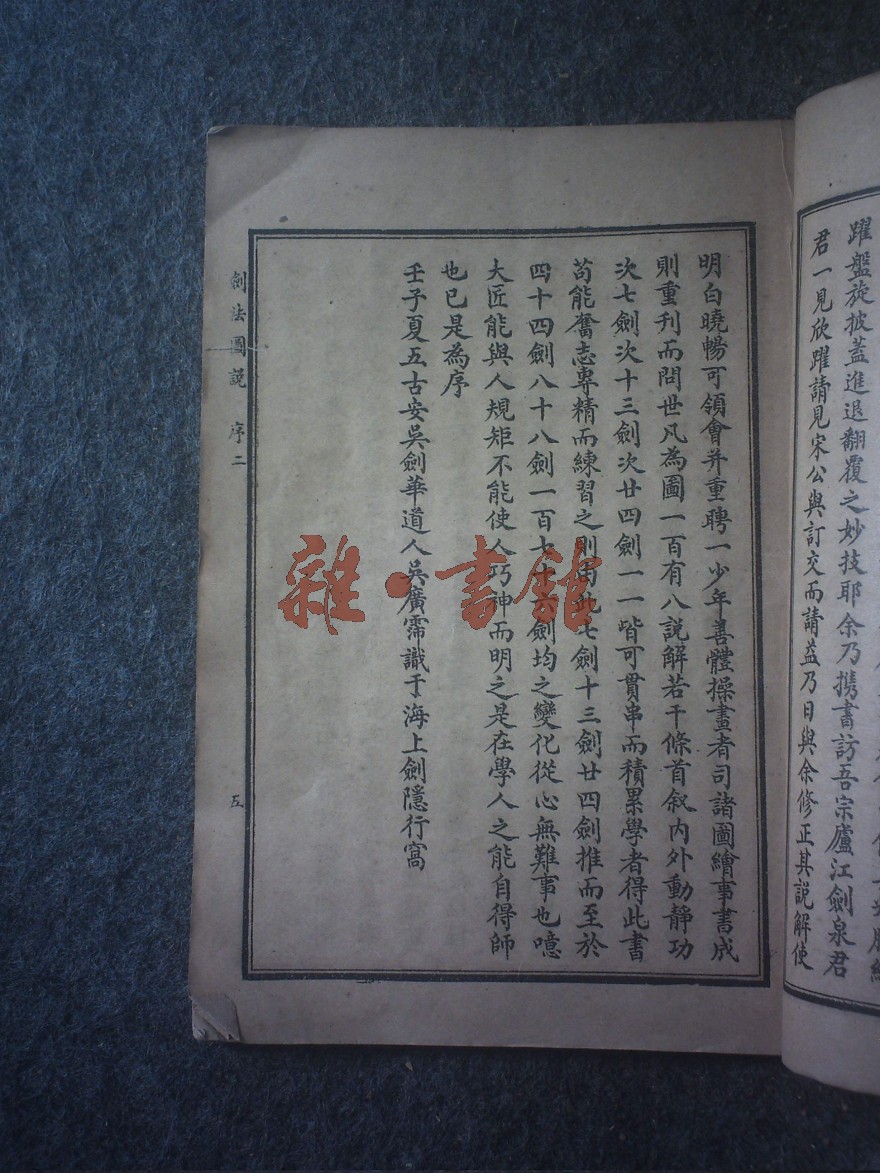 躍盤旋披蓋進退翻覆之妙技耶余乃携書訪吾宗廬江劍泉君
君一見欣躍請見宋公與訂交而請益乃日與余修正其說解使
明白曉暢可領會并重聘一少年善體操畫者司諸圖繪事書成
則重刊而問世凡為圖一百有八說解若干條首叙內外動靜功
次七劍次十三劍次廿四劍一一皆可貫串而積累學者得此書
苟能奮志專精而練習之則由此七劍十三劍廿四劍推而至於
四十四劍八十八劍一百七十六劍均之變化從心無難事也噫
大匠能與人規矩不能使人巧神而明之是在學人之能自得師
也已是為序
壬子夏五古安吳劍華道人吳廣霈識于海上劍隱行窩
劍法圖說 序二 五
雜·書館